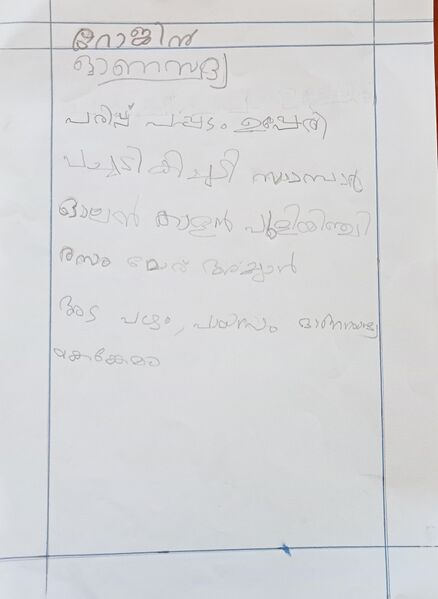 റോജിൻ
ഓണസദ്യ
പരിപ്പ് പപ്പടം ഉപ്പേരി
പച്ചടി കിച്ചടി സാമ്പാർ
ഓലൻ കാളൻ പുളിയിഞ്ചി
രസം മോര്
അട പഴം, പായസം ഓണസദ്യ